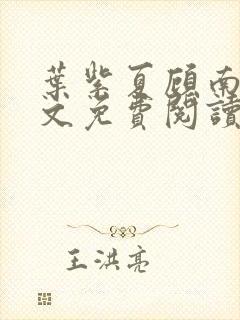 葉紫夏顾南
文免费閱讀
王洪亮